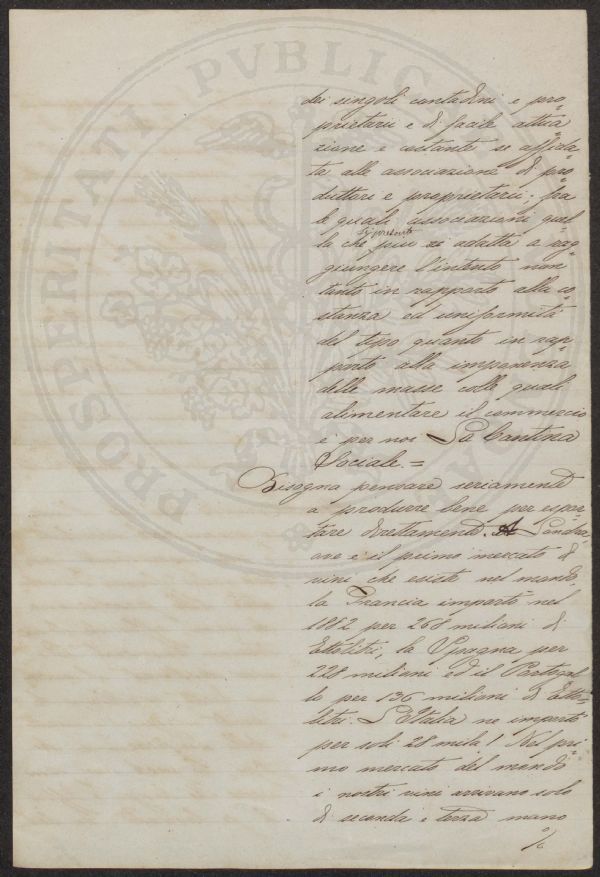 PROSPERITATI PVBLICAE
dei singoli contadini e pro=
prietarii e di facile attua
zione e costante se affida=
ta alle associazione di pro
duttori e proprietarii; fra
le quali associazioni quel
la che più si adatta a rag=
giungere l'intento non
tanto in rapporto alla co=
stanza ed uniformità
del tipo quanto in rap=
porto alla imponenza
delle masse colle quali
alimentare il commercio
è per noi La Cantina
Sociale.=
Bisogna pensare seriamente
a produrre bene per espor=
tare direttamente. A Londra,
ove è il primo mercato di
vini che esiste nel mondo,
la Francia importò nel
1882 per 268 milioni di
Ettolitri, la Spagna per
228 milioni ed il Portogal
lo per 136 milioni di Etto=
litri. L'Italia ne importò
per soli 28 mila! Nel pri
mo mercato del mondo
i nostri vini arrivano solo
di seconda e terza mano